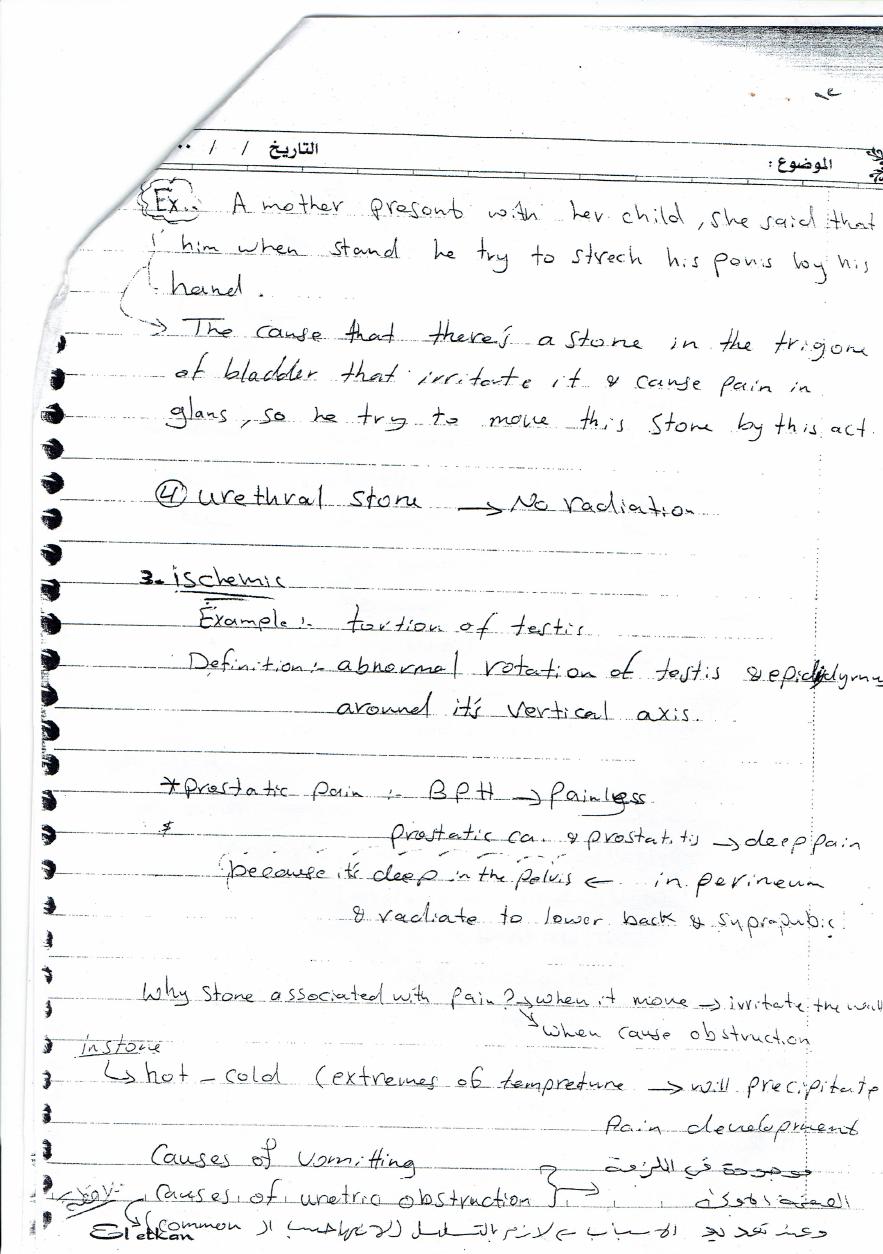 التاريخ / /
الموضوع :
Ex. A mother present with her child, she said that
him when stand he try to strech his penis by his
hand.
→ The cause that there's a stone in the trigone
of bladder that irritate it & cause pain in
glans, so he try to move this stone by this act.
④ urethral stone → No radiation
3. ischemic
Example :- tortion of testis
Definition :- abnormal rotation of testis & epididymus
around it's vertical axis.
*prostatic pain :- BPH → painless
prostatic ca. & prostatitis → deep pain
because it's deep in the pelvis ← in perineum
& radiate to lower back & suprapubic
Why stone associated with pain? → when it move → irritate the wall
↘ when cause obstruction
in stone
↳ hot - cold (extremes of tempreture → will precipitate
pain development
Causes of vomitting موجودة في الملزمة
Causes of uretric obstruction
El etkan (common الاسباب لازم بالتسلسل وعند تعديد